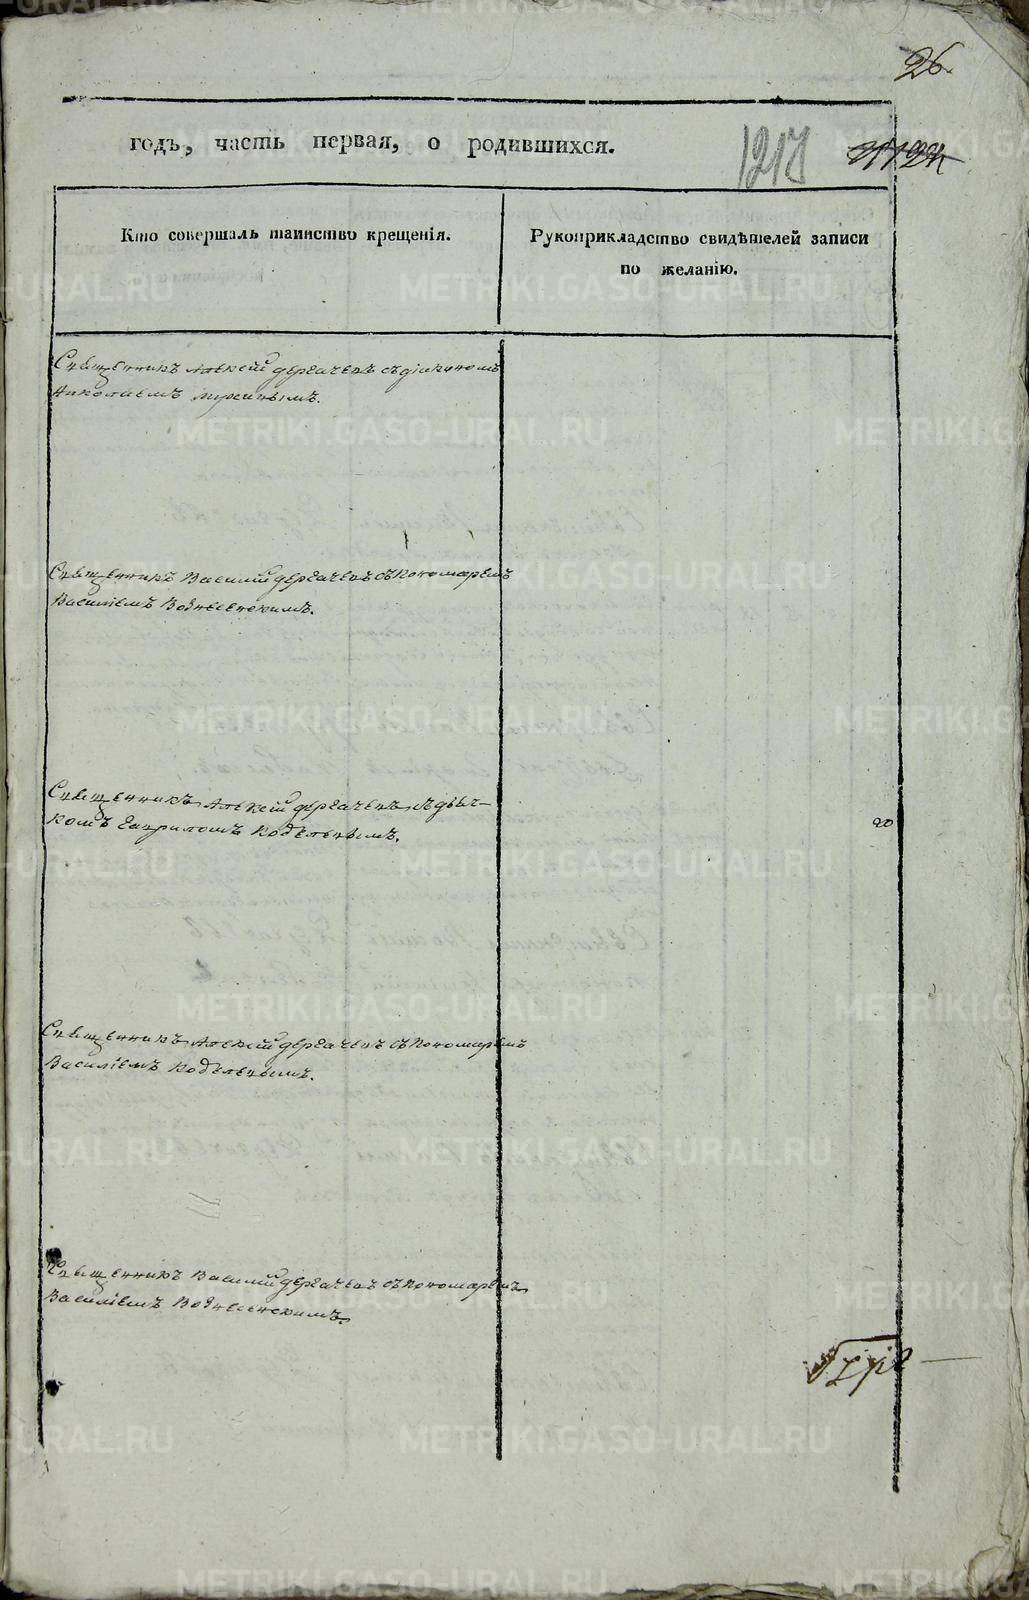 26.
годъ, часть первая, о родившихся.
1217
Кто совершалъ таинство крещенія.
Рукоприкладство свидѣтелей записи
по желанію.
Священникъ Алексѣй Дергачевъ съ діакономъ
Николаемъ
Священникъ Василій Дергачевъ съ Пономаремъ
Василіемъ Вознесенскимъ.
Священникъ Алексѣй Дергачевъ съ дьяч-
комъ Гавриломъ Козельскимъ.
20
Священникъ Алексѣй Дергачевъ съ Пономаремъ
Василіемъ
Священникъ Василій Дергачевъ съ Пономаремъ
Василіемъ Вознесенскимъ.
METRIKI.GASO-URAL.RU